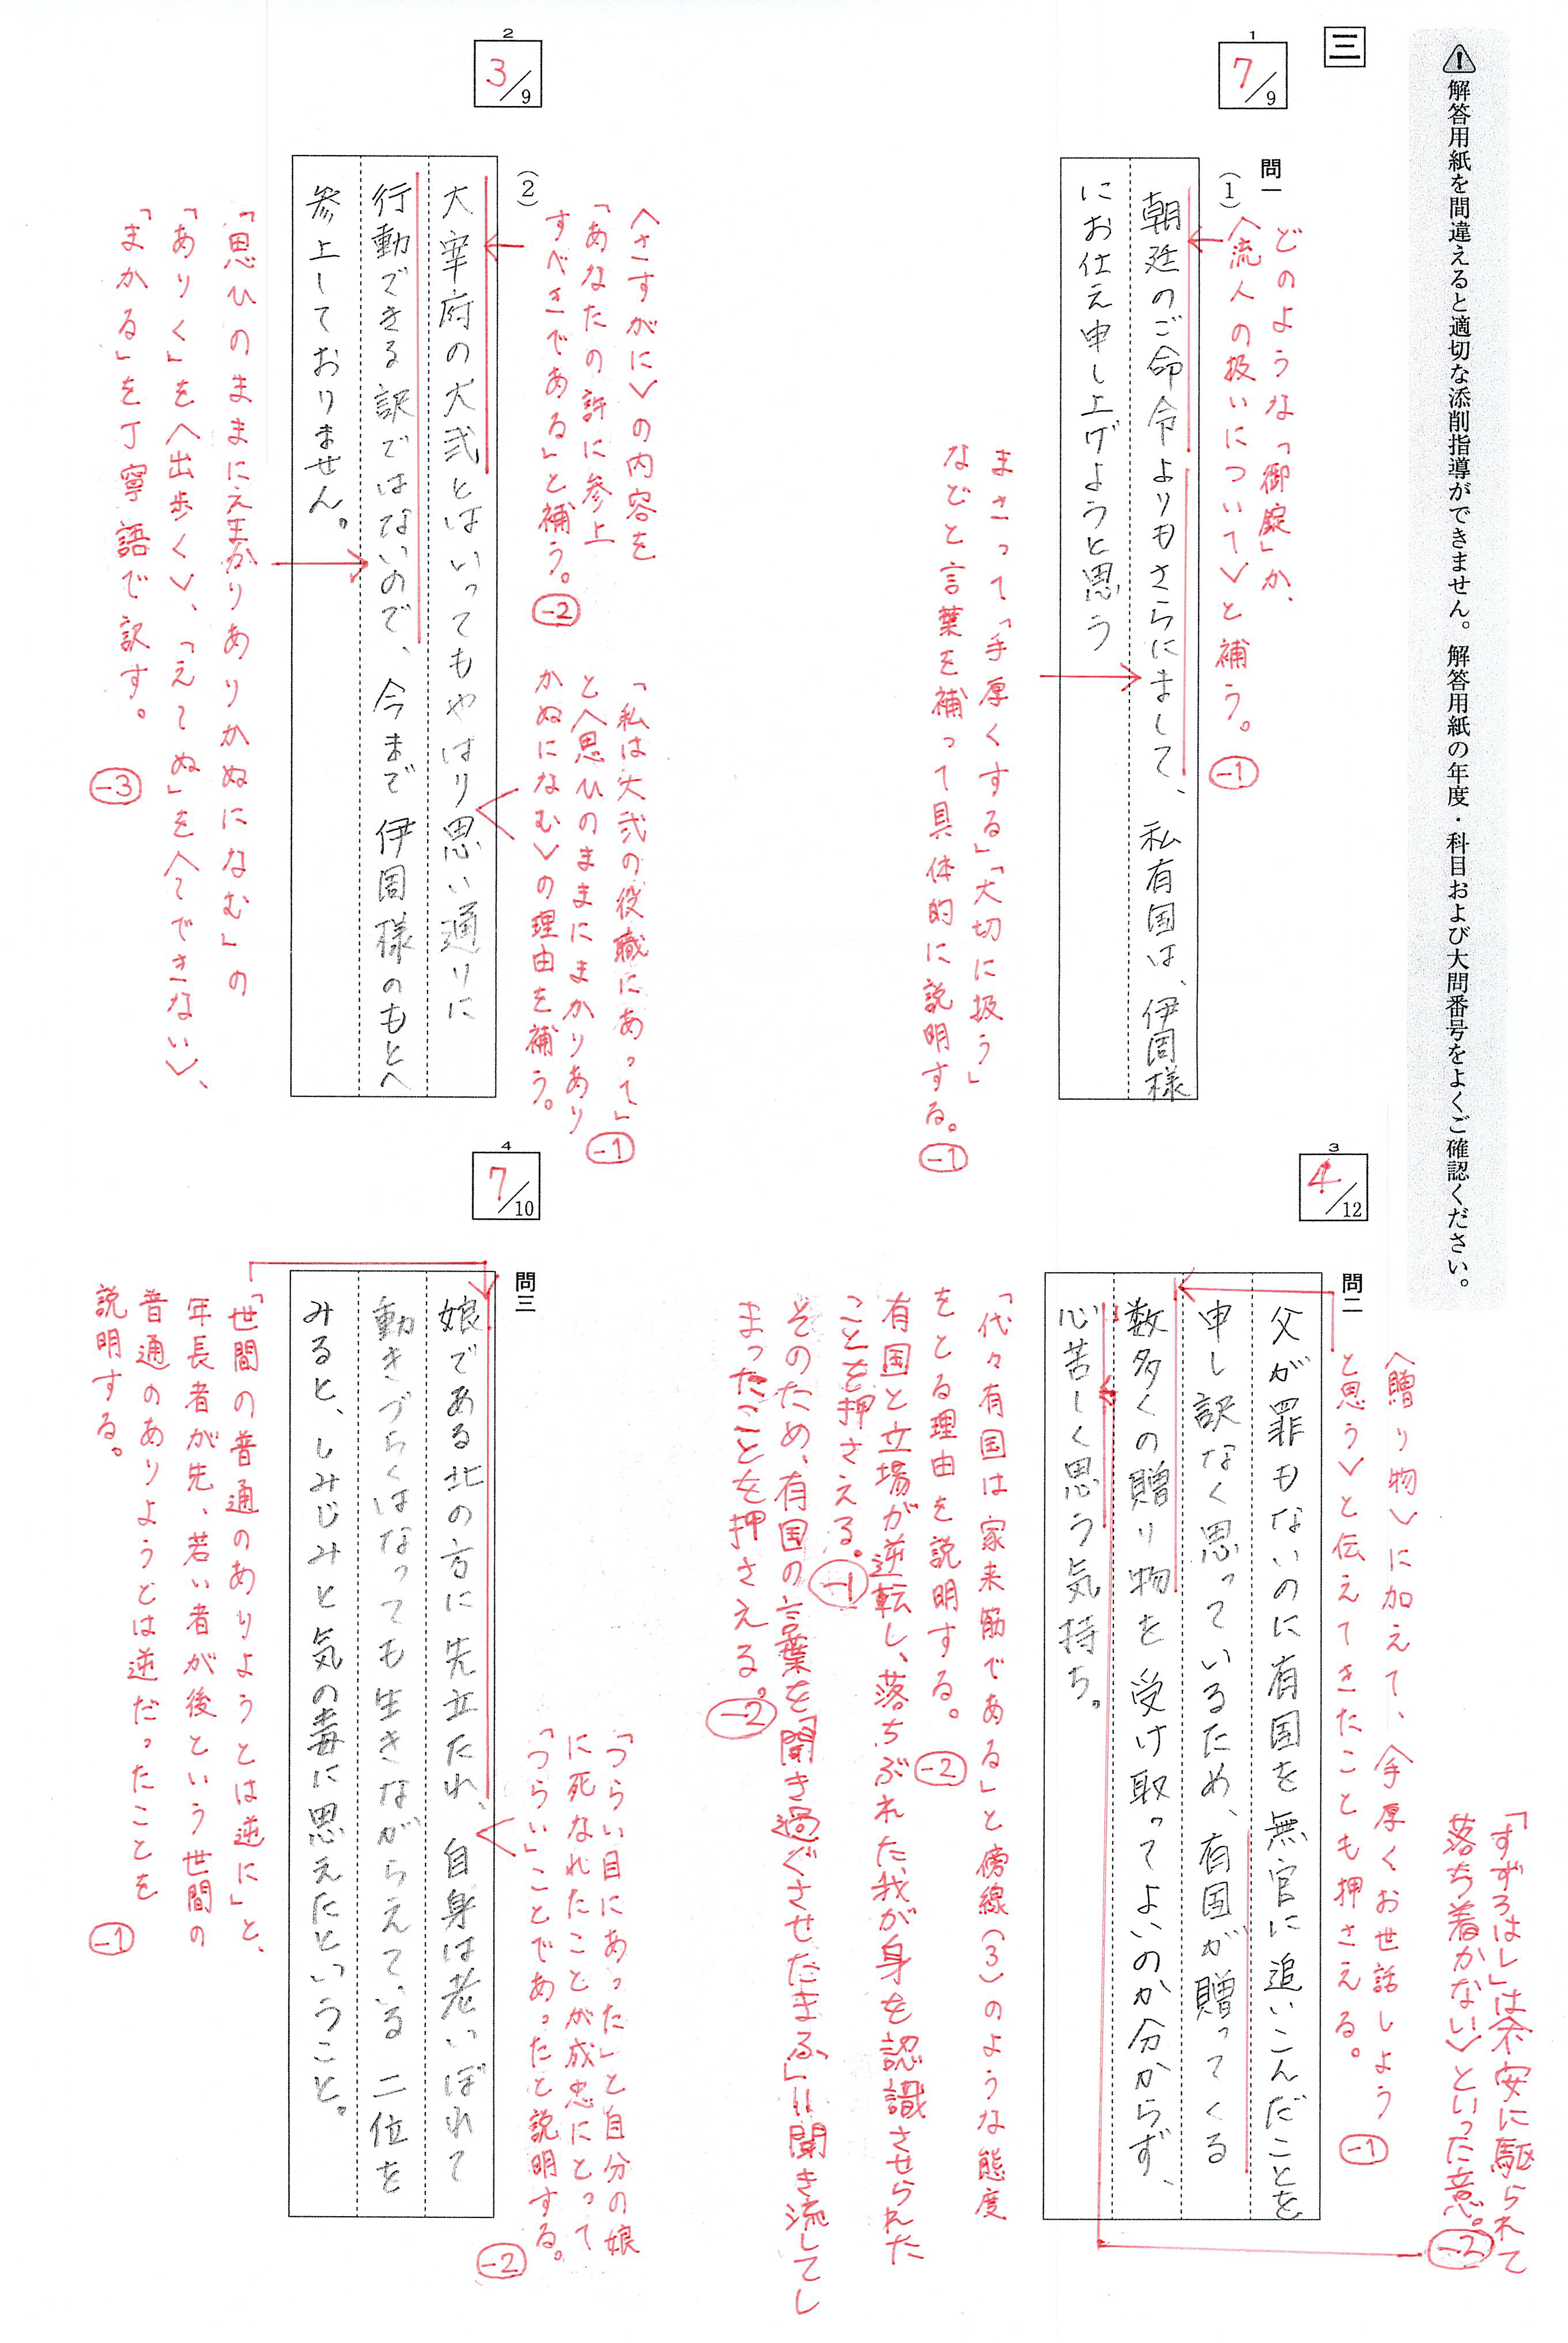 解答用紙を間違えると適切な添削指導ができません。解答用紙の年度・科目および大問番号をよくご確認ください。
三
1
7/9
問一
(1)
朝廷のご命令よりもさらにまして、私有国は、伊周様
にお仕え申し上げようと思う
どのような「御錠」か、
〈流人の扱いについて〉と補う。
-1
まさって「手厚くする」「大切に扱う」
などと言葉を補って具体的に説明する。
-1
2
3/9
(2)
大宰府の大弐とはいってもやはり思い通りに
行動できる訳ではないので、今まで伊周様のもとへ
参上しておりません。
〈さすがに〉の内容を
「あなたの許に参上
すべきである」と補う。
-2
「私は大弐の役職にあって」
と〈思ひのままにまかりあり
かぬになむ〉の理由を補う。
-1
「思ひのままにえまかりありかぬになむ」の
「ありく」を〈出歩く〉、「え〜ぬ」を〈〜できない〉、
「まかる」を丁寧語で訳す。
-3
3
4/12
問二
父が罪もないのに有国を無官に追いこんだことを
申し訳なく思っているため、有国が贈ってくる
数多くの贈り物を受け取ってよいのか分からず、
心苦しく思う気持ち。
「すずろはし」は〈不安に駆られて
落ち着かない〉といった意。
-2
〈贈り物〉に加えて、〈手厚くお世話しよう
と思う〉と伝えてきたことも押さえる。
-1
「代々有国は家来筋である」と傍線(3)のような態度
をとる理由を説明する。
-2
有国と立場が逆転し、落ちぶれた我が身を認識させられた
ことを押さえる。
-1
そのため、有国の言葉を「聞き過ぐさせたまふ」=聞き流してし
まったことを押さえる。
-2
4
7/10
問三
娘である北の方に先立たれ、自身は老いぼれて
動きづらくはなっても生きながらえている二位を
みると、しみじみと気の毒に思えたということ。
「つらい目にあった」と自分の娘
に死なれたことが成忠にとって
「つらい」ことであったと説明する。
-2
「世間の普通のありようとは逆に」と、
年長者が先、若い者が後という世間の
普通のありようとは逆だったことを
説明する。
-1